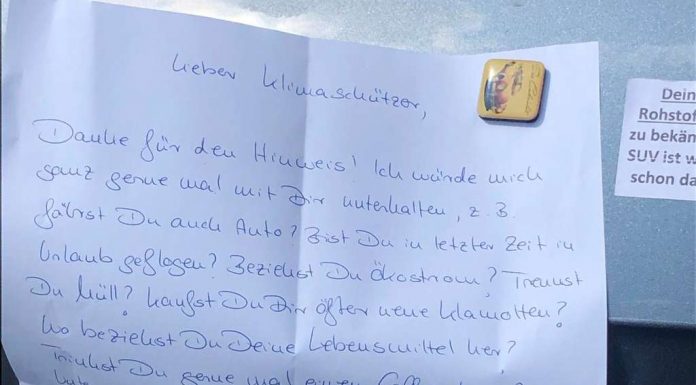 Lieber Klimaschützer,
Danke für den Hinweis! Ich würde mich
ganz gerne mal mit Dir unterhalten, z.B.
fährst Du auch Auto? Bist Du in letzter Zeit in
Urlaub geflogen? Beziehst Du Ökostrom? Trennst
Du Müll? Kaufst Du Dir öfter neue Klamotten?
Wo beziehst Du Deine Lebensmittel her?
Trinkst Du gerne mal einen
Dein
Rohstof
zu bekän
SUV ist w
schon da